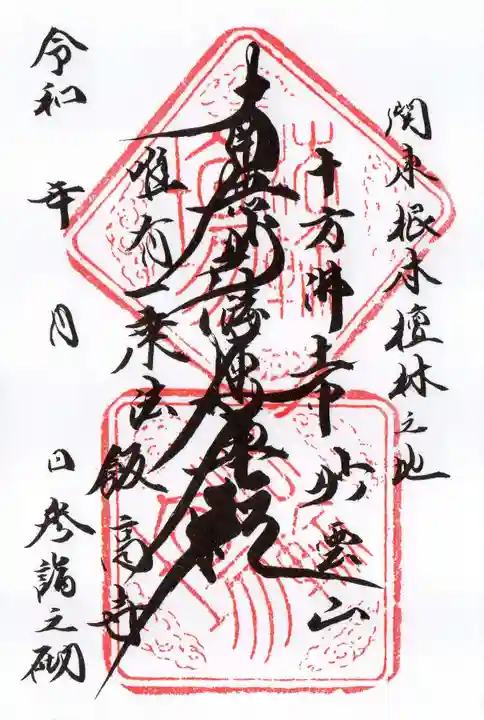 関東根本檀林之地
十方佛土中 妙雲山
南無妙法蓮華経
唯有一乗法 飯高寺
令和 年 月 日 参詣之砌